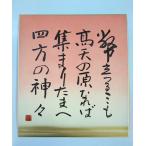 幣立つるここも
高天の原なれば
集まりたまへ
四方の神々